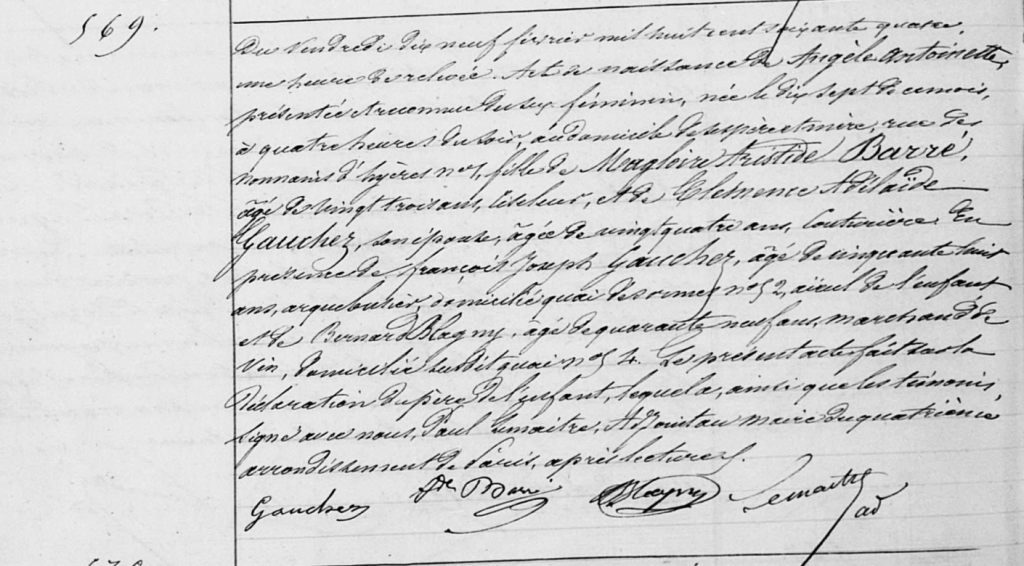 569.
Du vendredi dix neuf février mil huit cent soixante quatre,
une heure de relevée. Acte de naissance de Angèle Antoinette,
présentée et reconnue du sexe féminin, née le dix sept de ce mois,
à quatre heures du soir, au domicile de ses père et mère, rue des
Nonnains d'hyères n° 1, fille de Magloire Aristide Barré,
âgé de vingt trois ans, ciseleur, et de Clémence Adélaïde
Gauchez, son épouse, âgée de vingt quatre ans, couturière. En
présence de françois Joseph Gauchez, âgé de cinquante huit
ans, arquebusier, domicilié quai des ormes n° 52, aïeul de l'enfant
et de Bernard Blagny, âgé de quarante neuf ans, marchand de
vin, domicilié susdit quai n° 54. Le présent acte fait sur la
déclaration du père de l'enfant, lequel a, ainsi que les témoins
signé avec nous, Paul Lemaitre, Adjoint au maire du quatrième
arrondissement de Paris, après lecture.
Gauchez Barré Blagny Lemaitre
ad